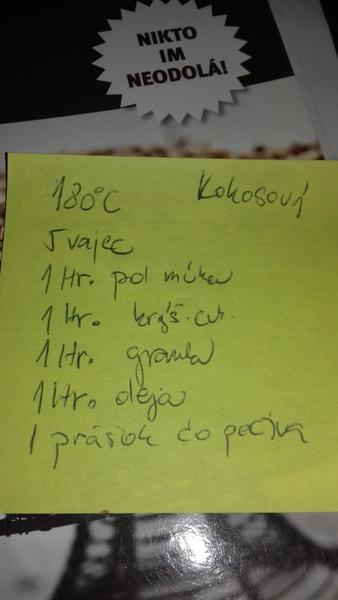 NIKTO
IM
NEODOLÁ!
180°C Kokosový
5 vajec
1 Hr. pol. múka
1 Hr. kryš. cuk.
1 Hr. granka
1 Hr. oleja
1 prášok do pečiva